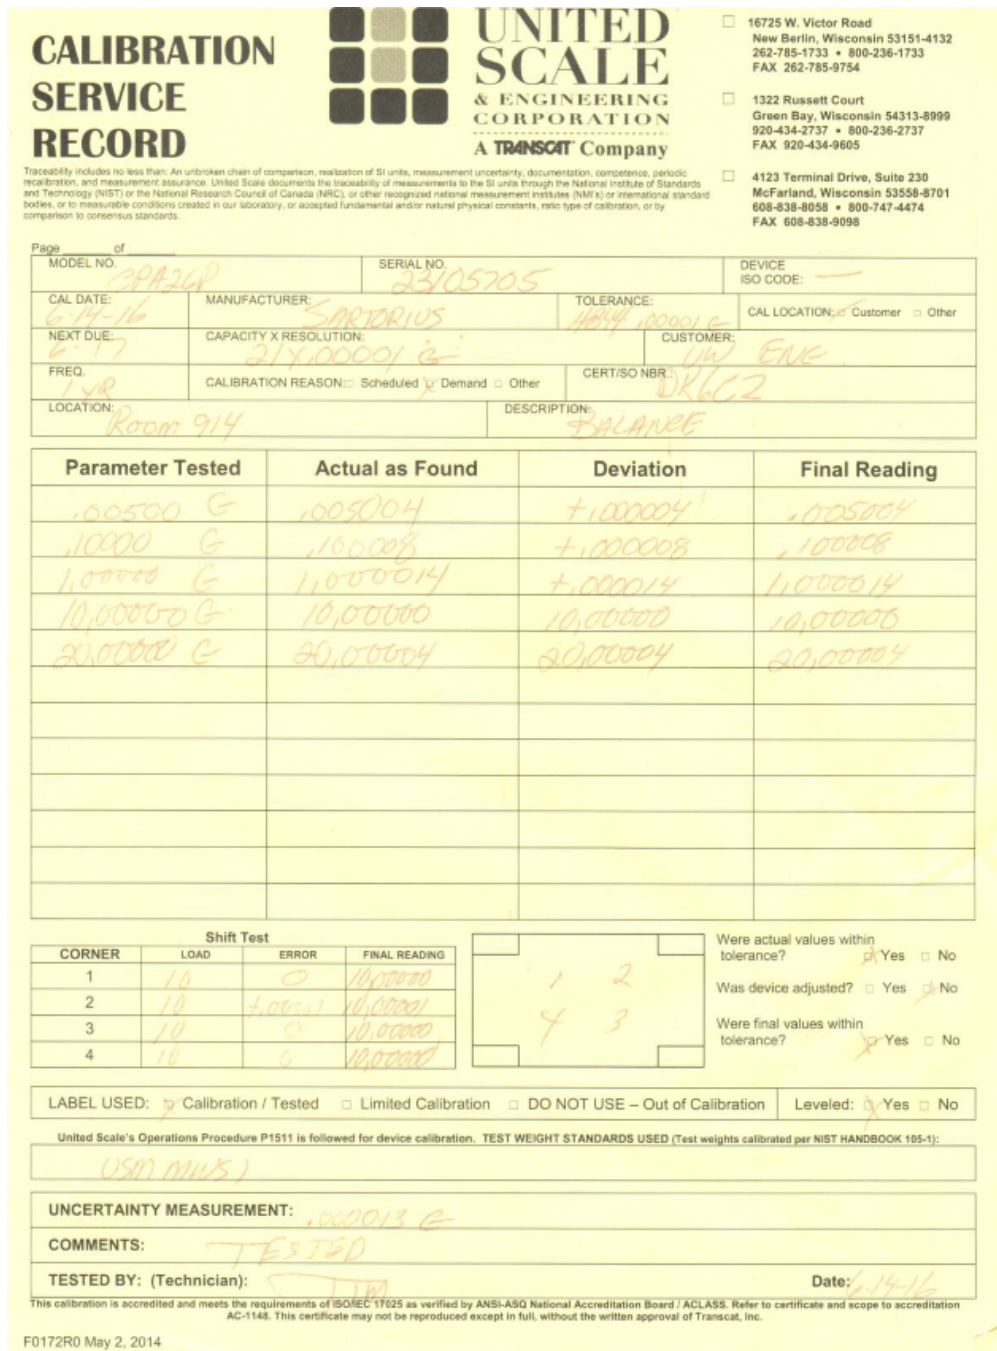 CALIBRATION
SERVICE
RECORD
UNITED
SCALE
& ENGINEERING
CORPORATION
A TRANSCAT Company
16725 W. Victor Road
New Berlin, Wisconsin 53151-4132
262-785-1733 • 800-236-1733
FAX 262-785-9754
1322 Russett Court
Green Bay, Wisconsin 54313-8999
920-434-2737 • 800-236-2737
FAX 920-434-9605
4123 Terminal Drive, Suite 230
McFarland, Wisconsin 53558-8701
608-838-8058 • 800-747-4474
FAX 608-838-9098
Traceability includes no less than: An unbroken chain of comparison, realization of SI units, measurement uncertainty, documentation, competence, periodic
recalibration, and measurement assurance. United Scale documents the traceability of measurements to the SI units through the National Institute of Standards
and Technology (NIST) or the National Research Council of Canada (NRC), or other recognized national measurement institutes (NMI's) or international standard
bodies, or to measurable conditions created in our laboratory, or accepted fundamental and/or natural physical constants, ratio type of calibration, or by
comparison to consensus standards.
Page ____ of ____
MODEL NO. CPA26P SERIAL NO. 23105705 DEVICE ISO CODE: —
CAL DATE: 6-14-16 MANUFACTURER: SARTORIUS TOLERANCE: HB44 .00001 G CAL LOCATION: Customer Other
NEXT DUE: 6-17 CAPACITY X RESOLUTION: 21X.00001 G CUSTOMER: UW ENG
FREQ. 1 YR CALIBRATION REASON: Scheduled Demand Other CERT/SO NBR.: DK6C2
LOCATION: Room 914 DESCRIPTION: BALANCE
Parameter Tested Actual as Found Deviation Final Reading
.00500 G .005004 +.000004 .005004
.10000 G .100008 +.000008 .100008
1.00000 G 1.0000014 +.000014 1.000014
10.00000 G 10.00000 10.00000 10.00000
20.00000 G 20.00004 20.00004 20.00004
Shift Test
CORNER LOAD ERROR FINAL READING
1 10 0 10.00000
2 10 +.00001 10.00001
3 10 0 10.00000
4 10 0 10.00000
1 2
4 3
Were actual values within
tolerance? Yes No
Was device adjusted? Yes No
Were final values within
tolerance? Yes No
LABEL USED: Calibration / Tested Limited Calibration DO NOT USE – Out of Calibration Leveled: Yes No
United Scale's Operations Procedure P1511 is followed for device calibration. TEST WEIGHT STANDARDS USED (Test weights calibrated per NIST HANDBOOK 105-1):
USM MWS1
UNCERTAINTY MEASUREMENT: .000013 G
COMMENTS: TESTED
TESTED BY: (Technician): TIM Date: 6-14-16
This calibration is accredited and meets the requirements of ISO/IEC 17025 as verified by ANSI-ASQ National Accreditation Board / ACLASS. Refer to certificate and scope to accreditation
AC-1148. This certificate may not be reproduced except in full, without the written approval of Transcat, Inc.
F0172R0 May 2, 2014